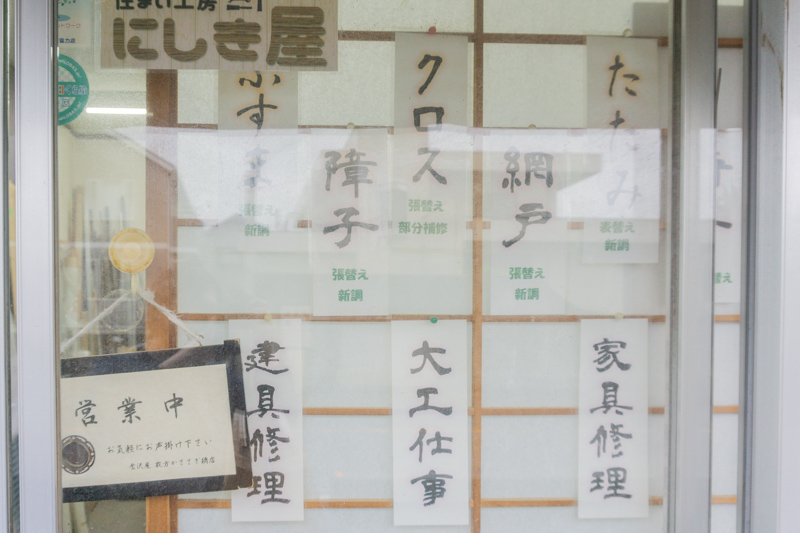 住まい工房
にしき屋
たたみ
表替え
新調
網戸
張替え
新調
クロス
張替え
部分補修
障子
張替え
新調
ふすま
張替え
新調
替え
家具修理
大工仕事
建具修理
営業中
お気軽にお声掛け下さい